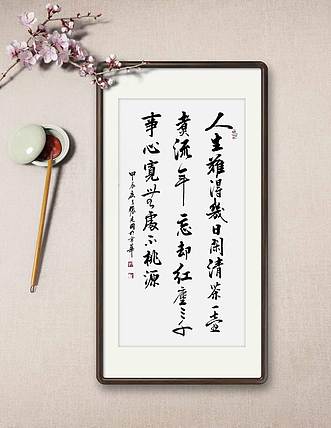 人生難得幾日閑清茶一壺
煮流年忘却紅塵三千
事心寬無處不桃源
甲辰